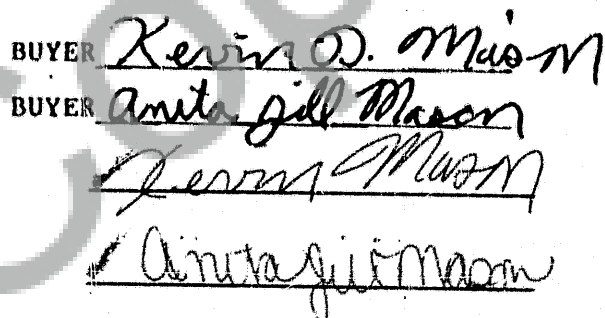 BUYER Kevin D. Mason
BUYER Anita Jill Mason
Kevin Mason
Anita Jill Mason